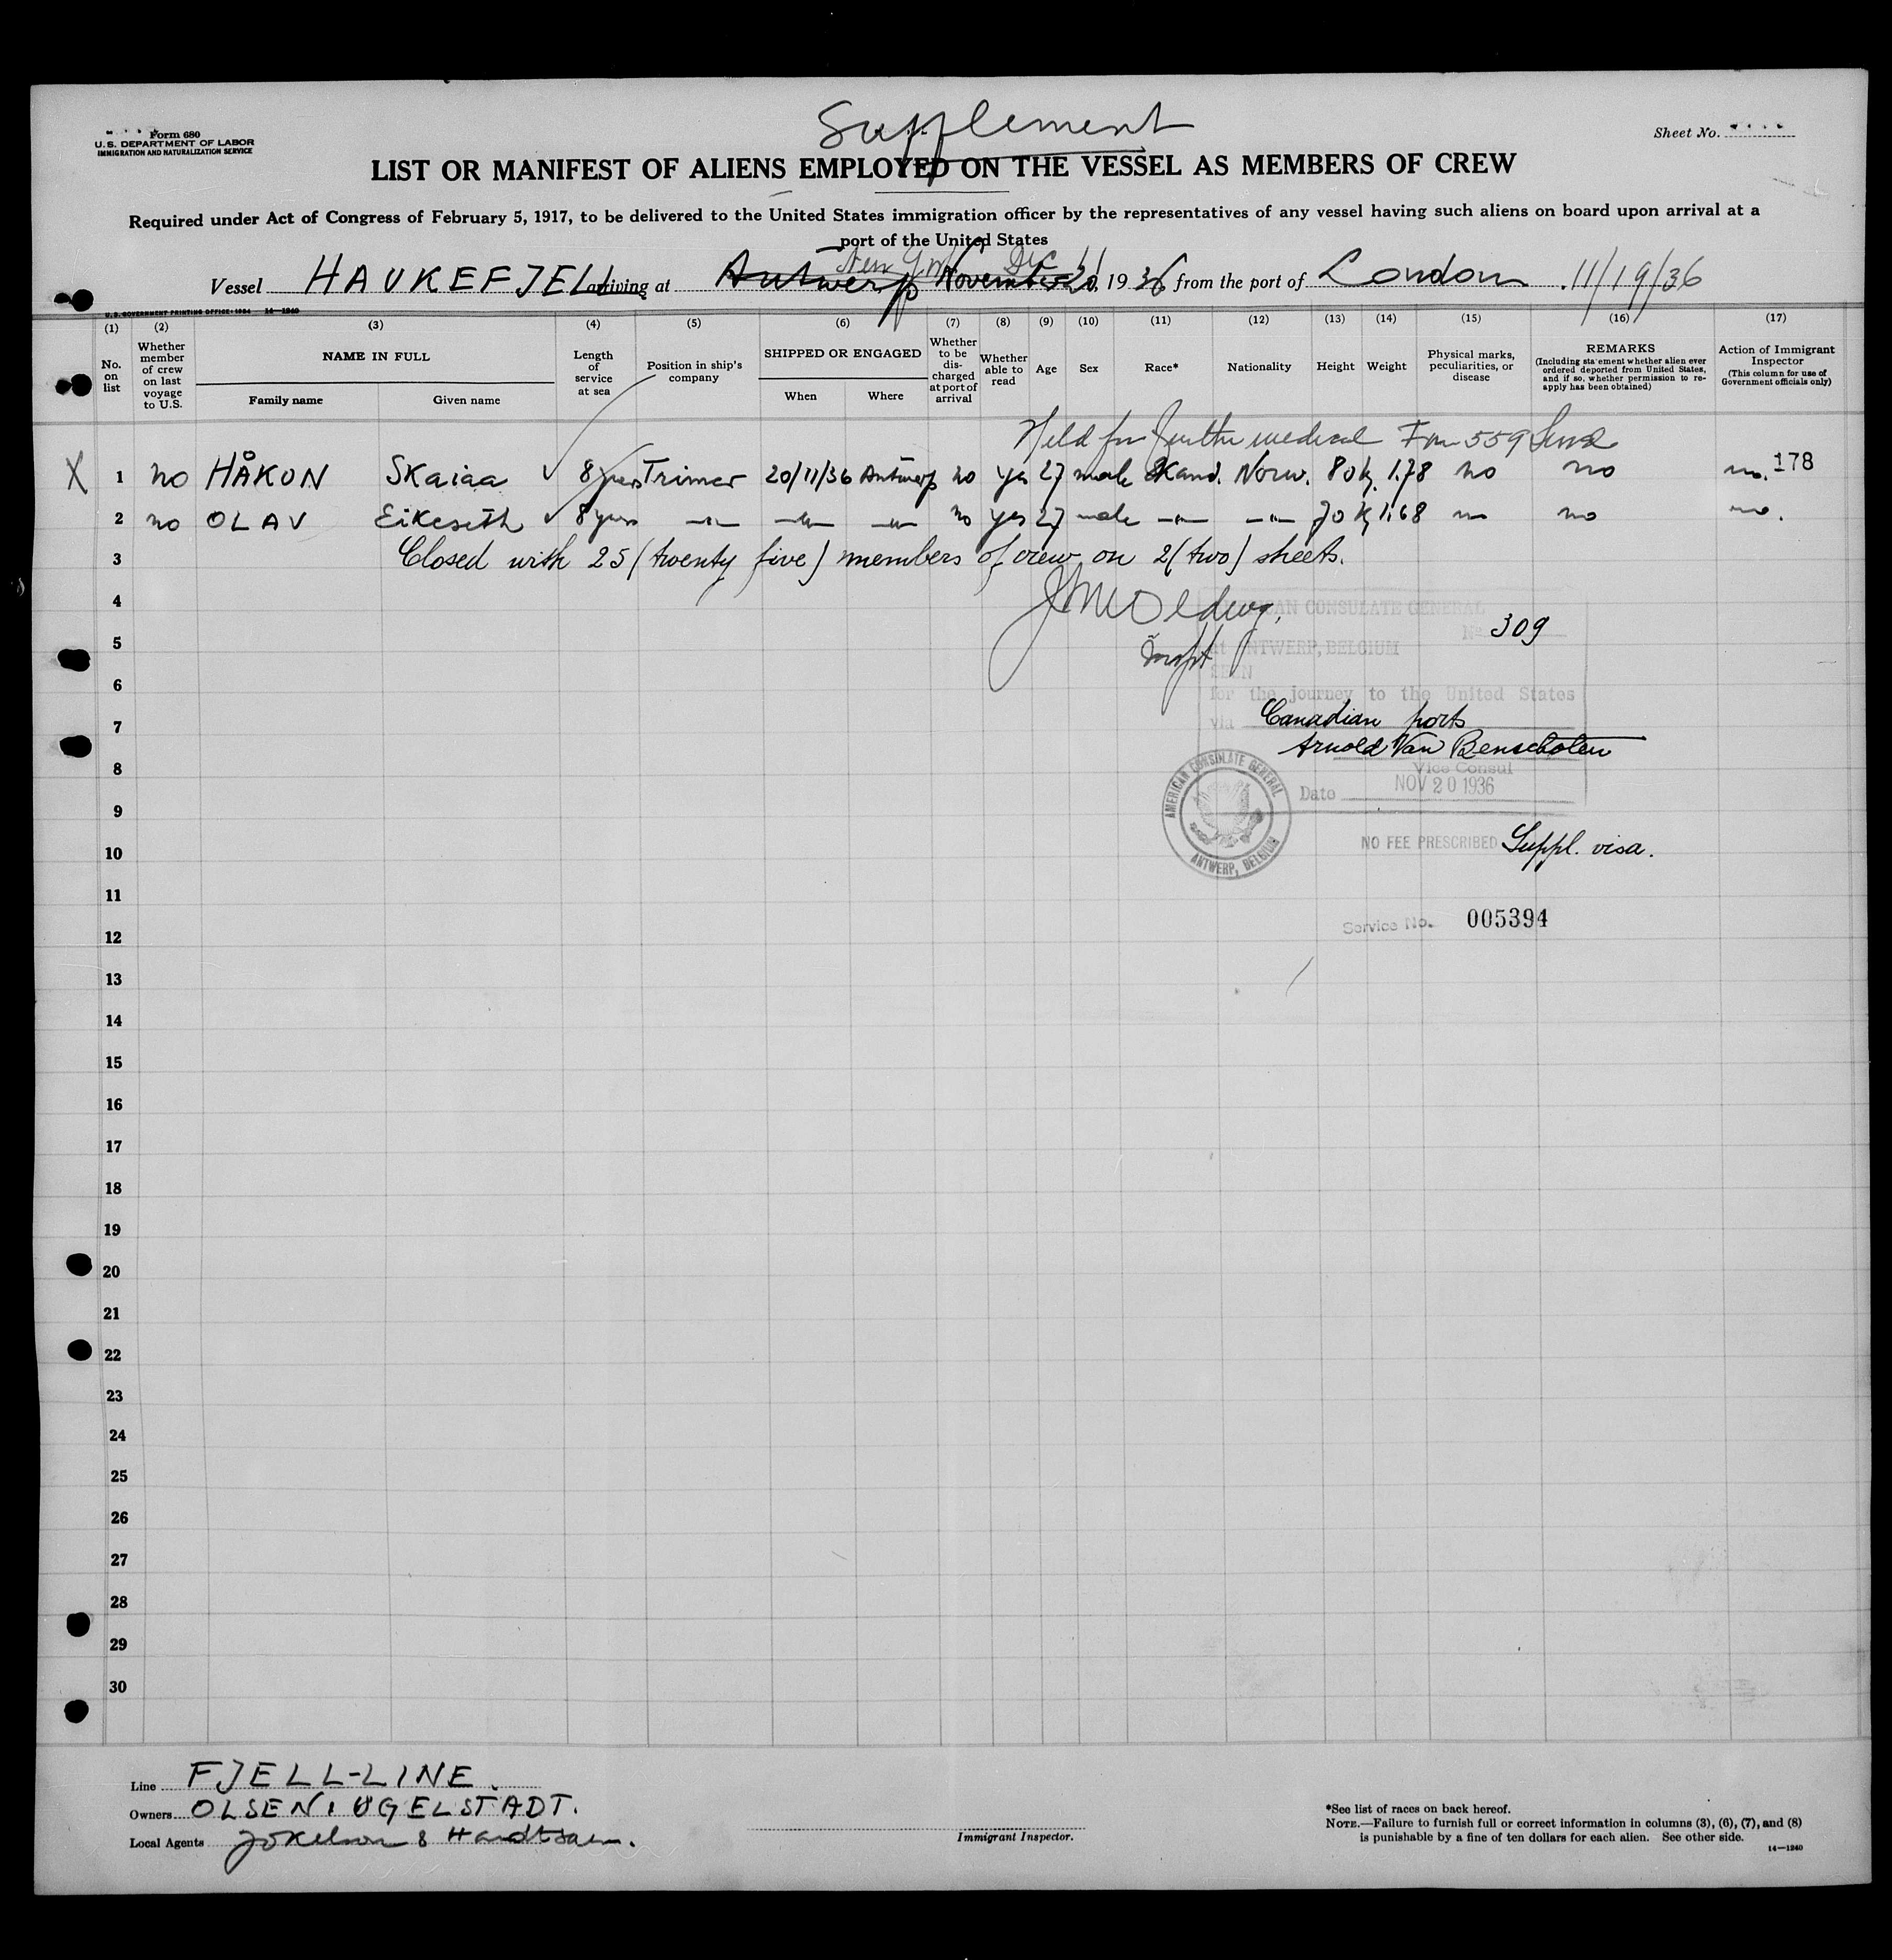 Supplement
Form 680
U.S. DEPARTMENT OF LABOR
IMMIGRATION AND NATURALIZATION SERVICE
Sheet No.
LIST OR MANIFEST OF ALIENS EMPLOYED ON THE VESSEL AS MEMBERS OF CREW
Required under Act of Congress of February 5, 1917, to be delivered to the United States immigration officer by the representatives of any vessel having such aliens on board upon arrival at a
port of the United States
New York Dec
Vessel HAUKEFJELL arriving at Antwerp November 20, 1936 from the port of London 11/19/36
U.S. GOVERNMENT PRINTING OFFICE: 1934 14-1240
(1) (2) (3) (4) (5) (6) (7) (8) (9) (10) (11) (12) (13) (14) (15) (16) (17)
No. on list
Whether member of crew on last voyage to U.S.
NAME IN FULL
Family name
Given name
Length of service at sea
Position in ship's company
SHIPPED OR ENGAGED
When
Where
Whether to be discharged at port of arrival
Whether able to read
Age
Sex
Race*
Nationality
Height
Weight
Physical marks, peculiarities, or disease
REMARKS
(Including statement whether alien ever ordered deported from United States, and if so, whether permission to re-apply has been obtained)
Action of Immigrant Inspector
(This column for use of Government officials only)
Held for further medical Form 559 Served
X 1 no HÅKON Skaiaa 8 years Trimer 20/11/36 Antwerp no yes 27 male Skand. Norw. 80 k. 1.78 no no no. 178
2 no OLAV Eikeseth 8 years -"- -"- -"- no yes 27 male -"- -"- 70 k 1.68 no no no.
3 Closed with 25 (twenty five) members of crew on 2 (two) sheets.
4
AMERICAN CONSULATE GENERAL
No 309
5
at ANTWERP, BELGIUM
Inspt
SEEN
6
for the journey to the United States
7
via Canadian ports
Arnold Van Benschoten
8
Vice Consul
Date NOV 20 1936
AMERICAN CONSULATE GENERAL
ANTWERP, BELGIUM
9
10
NO FEE PRESCRIBED Suppl. visa.
11
12
Service No. 005394
13
14
15
16
17
18
19
20
21
22
23
24
25
26
27
28
29
30
Line FJELL-LINE.
Owners OLSEN & UGELSTADT.
Local Agents
Immigrant Inspector.
*See list of races on back hereof.
NOTE.—Failure to furnish full or correct information in columns (3), (6), (7), and (8)
is punishable by a fine of ten dollars for each alien. See other side.
14—1240